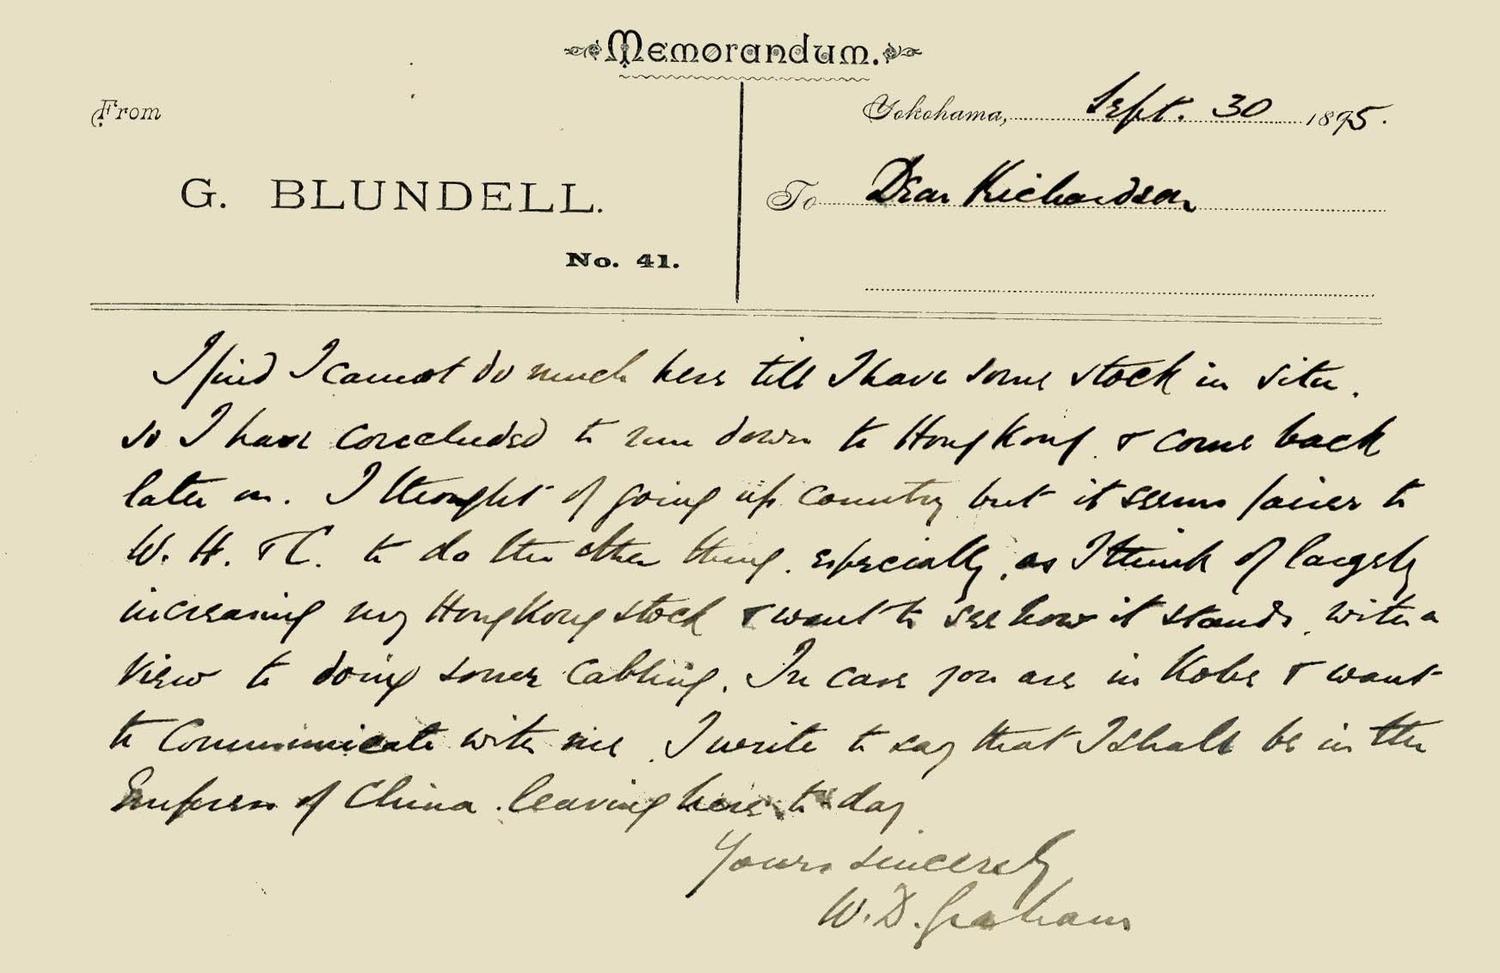 Memorandum.
From
Yokohama, Sept. 30 1895.
G. BLUNDELL.
To Dear Richardson
No. 41.
I find I cannot do much here till I have some stock in situ.
so I have concluded to run down to HongKong & come back
later on. I thought of going up country but it seems fairer to
W. H. & C. to do the other thing. especially, as I think of largely
increasing my HongKong stock & want to see how it stands, with a
view to doing some cabling. In case you are in Kobe & want
to communicate with me, I write to say that I shall be in the
Empress of China. leaving here to day
Yours sincerely
W. D. Graham